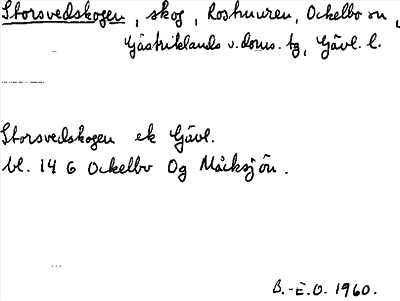 Storsvedskogen, skog, Rosmuren, Ockelbo sn,
Gästriklands v. doms. tg, Gävl. l.
Storsvedskogen ek Gävl.
bl. 14 G Ockelbo Og Måcksjön.
B.-E.O. 1960.